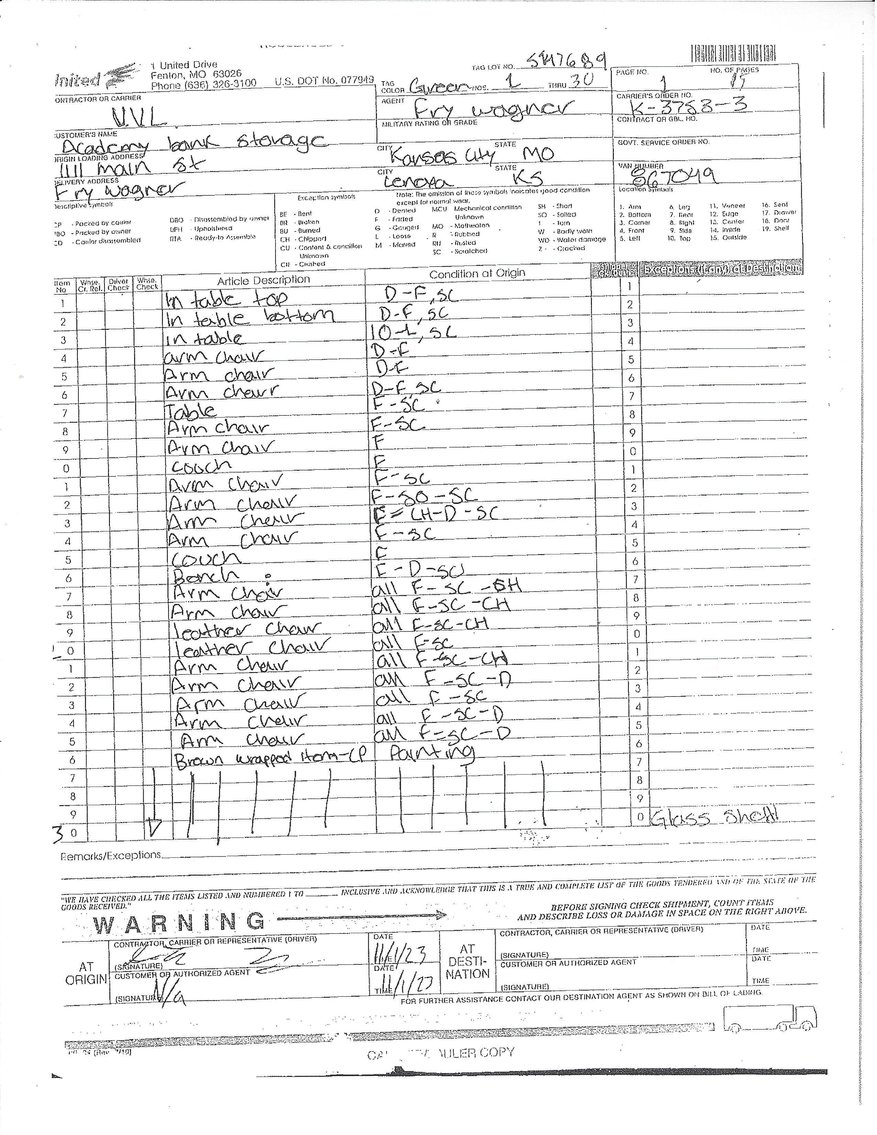 United
1 United Drive
Fenton, MO 63026
Phone (636) 326-3100
U.S. DOT No. 077949
TAG LOT NO. 547689
TAG COLOR Green NOS. 1 THRU 30
PAGE NO. 1
NO. OF PAGES
CONTRACTOR OR CARRIER
UVL
AGENT
Fry Wagner
CARRIER'S ORDER NO.
K-3758-3
MILITARY RATING OR GRADE
CONTRACT OR GBL. NO.
CUSTOMER'S NAME
Academy bank storage
GOVT. SERVICE ORDER NO.
ORIGIN LOADING ADDRESS
1111 Main St
CITY Kansas City STATE MO
VAN NUMBER
867049
DELIVERY ADDRESS
Fry Wagner
CITY Lenexa STATE KS
Descriptive symbols
CP - Packed by carrier
PBO - Packed by owner
CD - Carrier disassembled
DBO - Disassembled by owner
UPH - Upholstered
RTA - Ready-to-Assemble
Exception symbols
Note: The omission of these symbols indicates good condition except for normal wear.
BE - Bent
BR - Broken
BU - Burned
CH - Chipped
CU - Contents & condition Unknown
CR - Crushed
D - Dented
F - Faded
G - Gouged
L - Loose
M - Marred
MCU Mechanical condition Unknown
MO - Motheaten
R - Rubbed
RU - Rusted
SC - Scratched
SH - Short
SO - Soiled
T - Torn
W - Badly worn
WD - Water damage
Z - Cracked
Location symbols
1. Arm
2. Bottom
3. Corner
4. Front
5. Left
6. Leg
7. Rear
8. Right
9. Side
10. Top
11. Veneer
12. Edge
13. Center
14. Inside
15. Outside
16. Seat
17. Drawer
18. Door
19. Shelf
Item No Whse. Cr. Rel. Driver Check Whse. Check Article Description Condition at Origin Exceptions (if any) at Destination
1 In table top D-F, SC 1
2 In table bottom D-F, SC 2
3 In table 10-L, SC 3
4 arm chair D-F 4
5 Arm chair D-F 5
6 Arm chair D-F, SC 6
7 Table F-SC 7
8 Arm chair F-SC 8
9 Arm chair F 9
0 couch F 0
1 Arm chair F-SC 1
2 Arm chair F-SO-SC 2
3 Arm chair F-CH-D-SC 3
4 Arm chair F-SC 4
5 couch F 5
6 Bench F-D-SC 6
7 Arm Chair all F-SC-SH 7
8 Arm chair all F-SC-CH 8
9 leather Chair all F-SC-CH 9
0 leather Chair all F-SC 0
1 Arm Chair all F-SC-CH 1
2 Arm Chair all F-SC-D 2
3 Arm Chair all F-SC 3
4 Arm Chair all F-SC-D 4
5 Arm Chair all F-SC-D 5
6 Brown wrapped item-CP Painting 6
7 7
8 8
9 9
30 0 Glass Shelf
Remarks/Exceptions
"WE HAVE CHECKED ALL THE ITEMS LISTED AND NUMBERED 1 TO INCLUSIVE AND ACKNOWLEDGE THAT THIS IS A TRUE AND COMPLETE LIST OF THE GOODS TENDERED AND OF THE STATE OF THE GOODS RECEIVED."
WARNING
BEFORE SIGNING CHECK SHIPMENT, COUNT ITEMS
AND DESCRIBE LOSS OR DAMAGE IN SPACE ON THE RIGHT ABOVE.
AT ORIGIN
CONTRACTOR, CARRIER OR REPRESENTATIVE (DRIVER)
(SIGNATURE)
DATE
11/1/23
CUSTOMER OR AUTHORIZED AGENT
(SIGNATURE) N/a
DATE
TIME 11/1/23
AT DESTINATION
CONTRACTOR, CARRIER OR REPRESENTATIVE (DRIVER)
(SIGNATURE)
DATE
TIME
CUSTOMER OR AUTHORIZED AGENT
(SIGNATURE)
DATE
TIME
FOR FURTHER ASSISTANCE CONTACT OUR DESTINATION AGENT AS SHOWN ON BILL OF LADING.
HAULER COPY